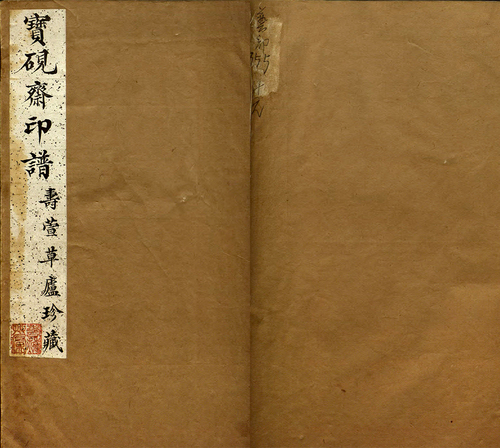 寶硯齋印譜
壽萱草廬珍藏